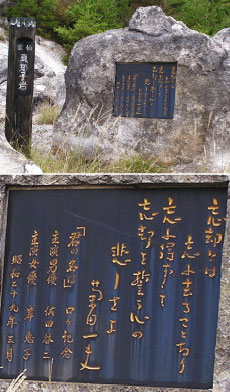 雲仙
真知子岩
忘却とは
忘れ去ることなり
忘れ得ずして
忘却を誓う心の
悲しさよ
菊田一夫
「君の名は」ロケ記念
主演男優 佐田啓二
主演女優 岸恵子
昭和二十九年三月